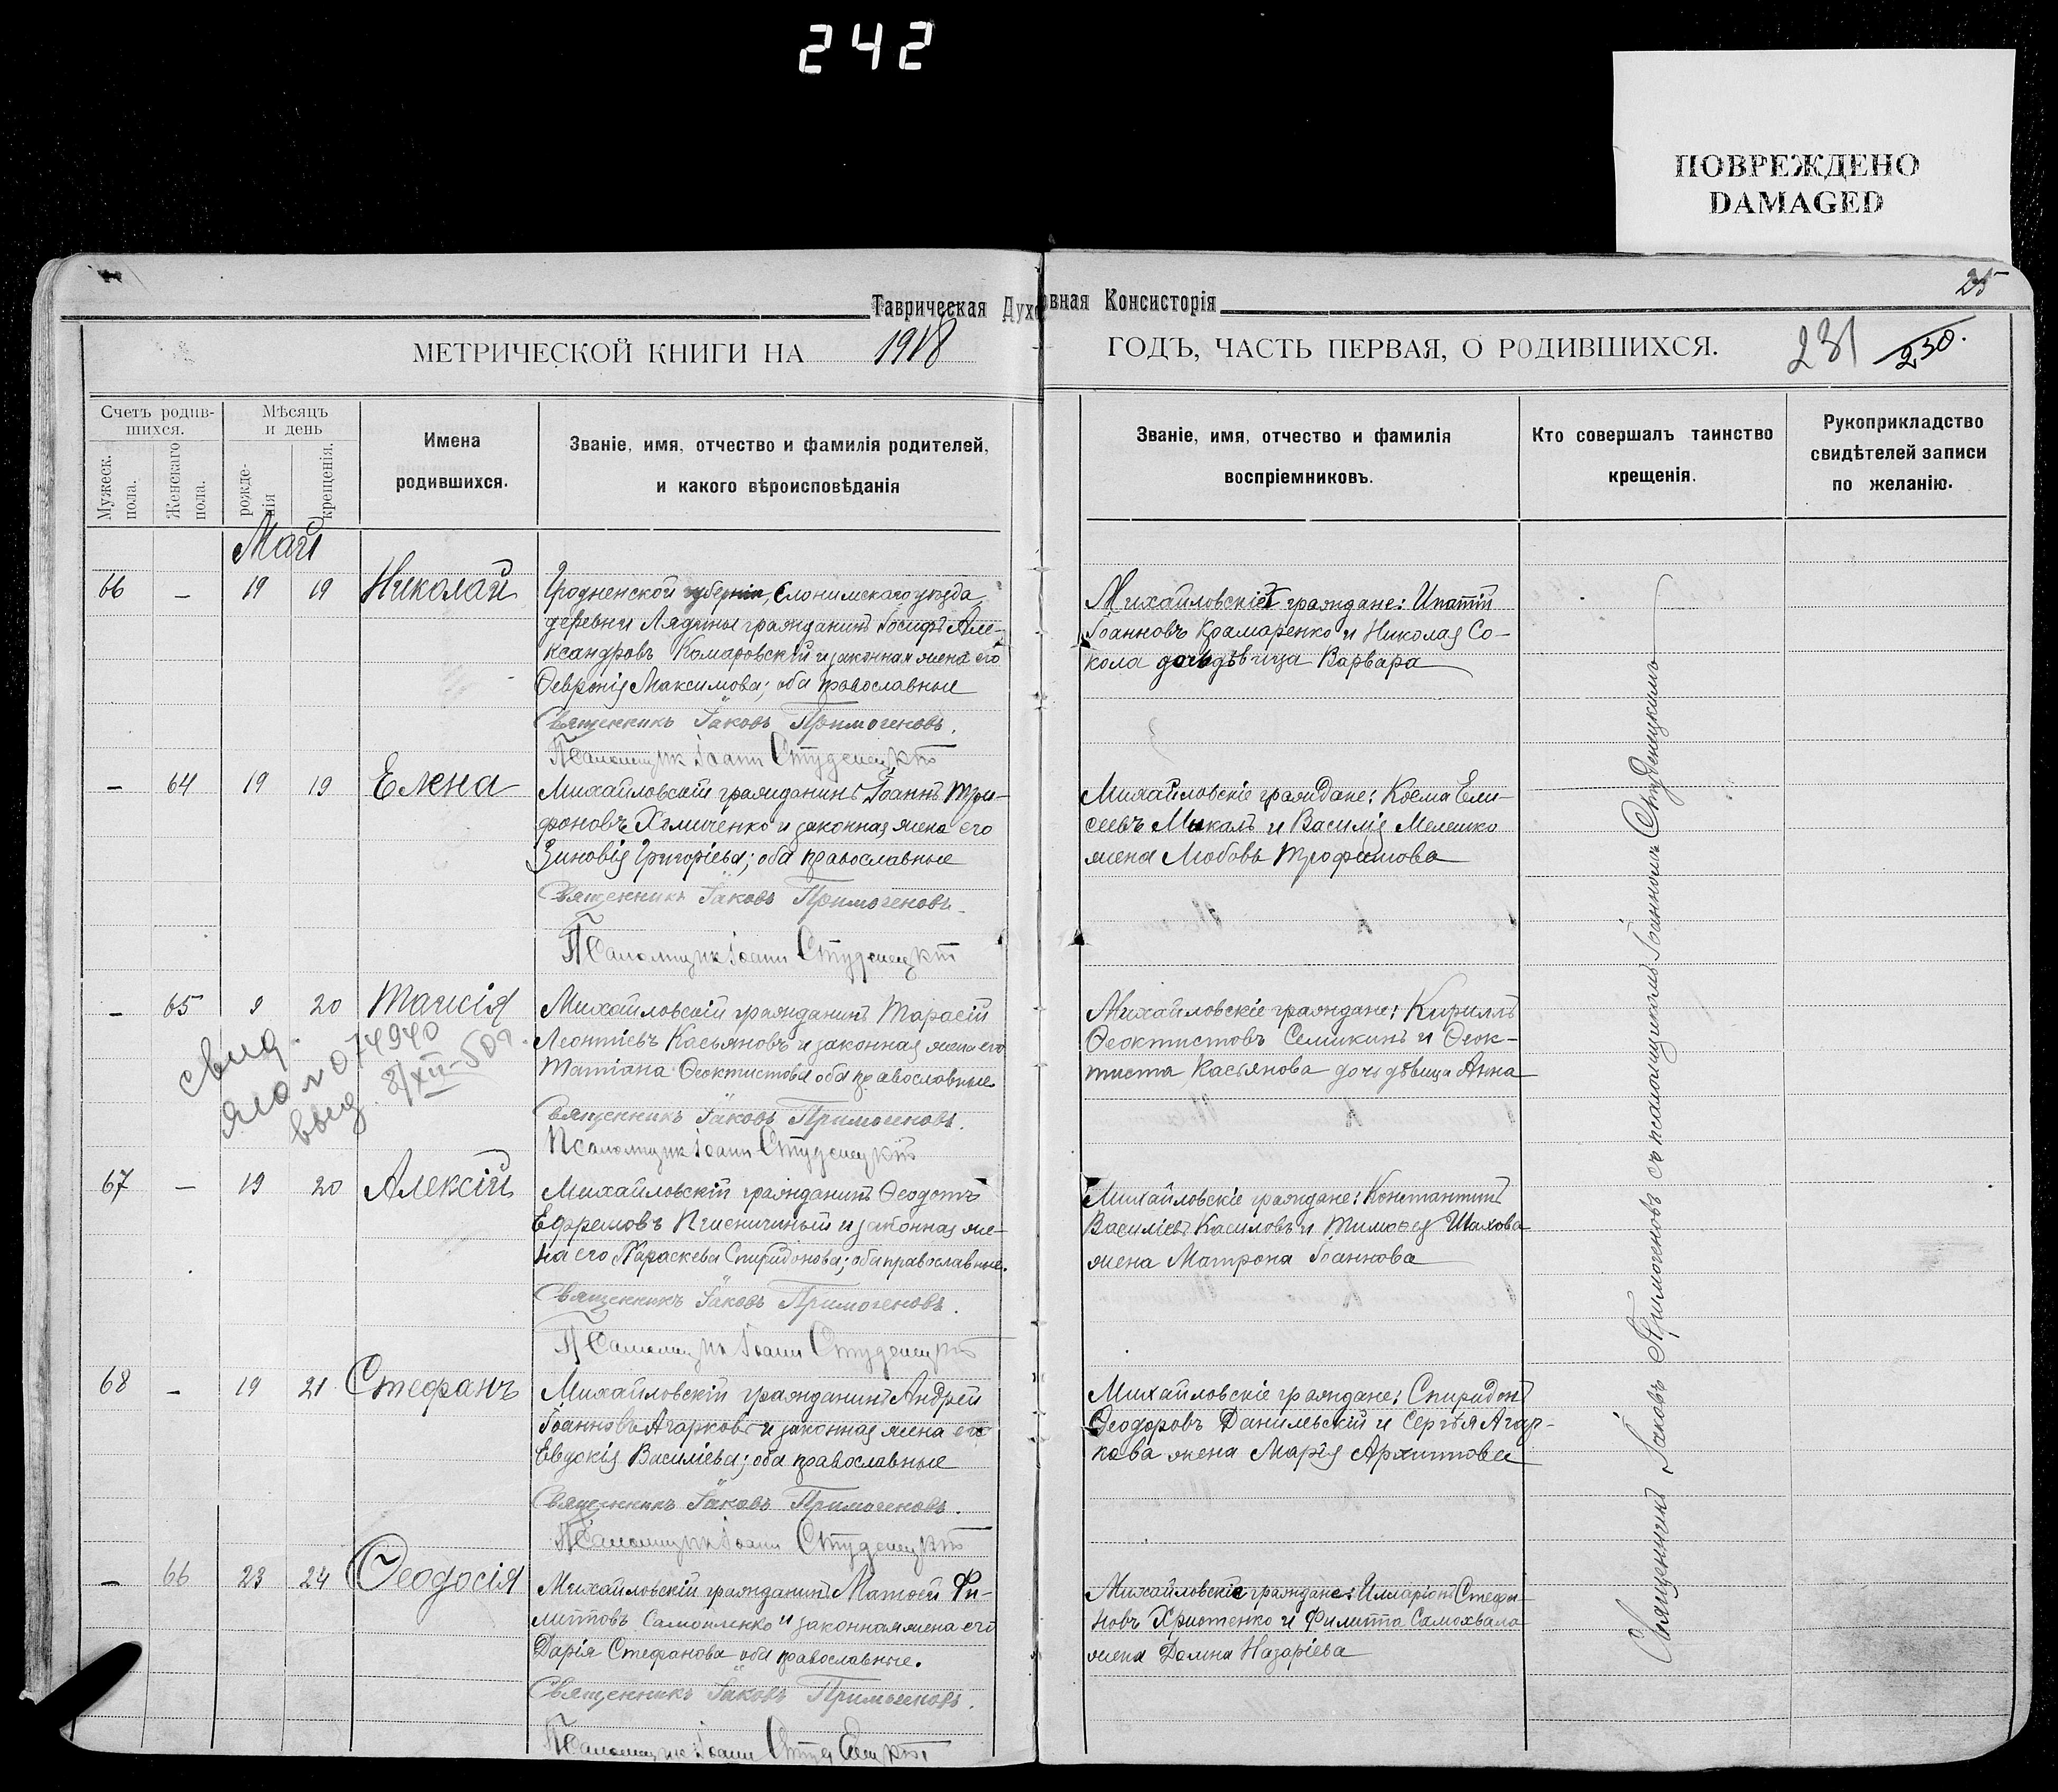 242
ПОВРЕЖДЕНО
DAMAGED
25
Таврическая Духовная Консисторія
МЕТРИЧЕСКОЙ КНИГИ НА 1918 ГОДЪ, ЧАСТЬ ПЕРВАЯ, О РОДИВШИХСЯ.
231 230.
Счетъ родив-
шихся.
Мужеск.
пола.
Женскаго
пола.
Мѣсяцъ
и день
рожде-
нія
крещенія.
Имена
родившихся.
Званіе, имя, отчество и фамилія родителей,
и какого вѣроисповѣданія
Званіе, имя, отчество и фамилія
воспріемниковъ.
Кто совершалъ таинство
крещенія.
Рукоприкладство
свидѣтелей записи
по желанію.
Май
66 — 19 19 Николай
Гродненской губерніи, Слонимскаго уѣзда
деревни Лядины гражданинъ Іосифъ Але-
ксандровъ Комаровскій и законная жена его
Ѳевронія Максимова; оба православные
Священникъ Іаковъ Примогеновъ.
Псаломщикъ Іоаннъ Студенецкій
Михайловскіе граждане: Ипатій
Іоанновъ Крамаренко и Николая Со-
кола дочь дѣвица Варвара
— 64 19 19 Елена
Михайловскій гражданинъ Іоаннъ Три-
фоновъ Химиченко и законная жена его
Зиновія Григоріева; оба православные
Священникъ Іаковъ Примогеновъ.
Псаломщикъ Іоаннъ Студенецкій
Михайловскіе граждане: Косма Ели-
сеевъ Мыкалъ и Василія Мелешко
жена Любовь Трофимова
— 65 9 20 Таисія
Михайловскій гражданинъ Тарасій
Леонтіевъ Касьяновъ и законная жена его
Татіана Ѳеоктистова оба православные
Священникъ Іаковъ Примогеновъ.
Псаломщикъ Іоаннъ Студенецкій
Михайловскіе граждане: Кириллъ
Ѳеоктистовъ Семикинъ и Ѳеок-
тиста Касьянова дочь дѣвица Анна
свид.
ЯЮ N 074940
выд. 8/XII-50г.
67 — 19 20 Алексій
Михайловскій гражданинъ Ѳеодотъ
Ефремовъ Пшеничный и законная же-
на его Параскева Спиридонова; оба православные.
Священникъ Іаковъ Примогеновъ.
Псаломщикъ Іоаннъ Студенецкій
Михайловскіе граждане: Константинъ
Василіевъ Касиловъ и Тимоѳея Шахова
жена Матрона Іоаннова
68 — 19 21 Стефанъ
Михайловскій гражданинъ Андрей
Іоанновъ Агарковъ и законная жена его
Евдокія Василіева; оба православные
Священникъ Іаковъ Примогеновъ.
Псаломщикъ Іоаннъ Студенецкій
Михайловскіе граждане: Спиридонъ
Ѳеодоровъ Данильскій и Сергѣя Агар-
кова жена Марія Архиппова
— 66 23 24 Ѳеодосія
Михайловскій гражданинъ Матѳей Фи-
липповъ Самойленко и законная жена его
Дарія Стефанова оба православные.
Священникъ Іаковъ Примогеновъ.
Псаломщикъ Іоаннъ Студенецкій
Михайловскіе граждане: Илларіонъ Стефа-
новъ Христенко и Филиппа Самохвала
жена Домна Назаріева
Священникъ Іаковъ Примогеновъ съ псаломщикомъ Іоанномъ Студенецкимъ